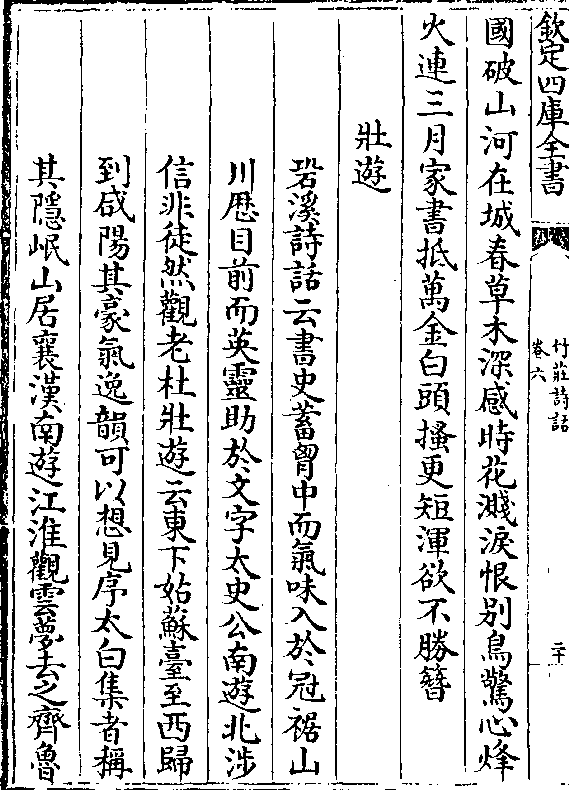 欽定四庫全書
竹莊詩話
卷六
二十
國破山河在城春草木深感時花濺淚恨别鳥驚心烽
火連三月家書抵萬金白頭搔更短渾欲不勝簪
壯遊
䂬溪詩話云書史蓄胷中而氣味入於冠裾山
川歴目前而英靈助於文字太史公南遊北涉
信非徒然觀老杜壯遊云東下姑蘇臺至西歸
到咸陽其豪氣逸韻可以想見序太白集者稱
其隱岷山居襄漢南遊江淮觀雲夢去之齊魯